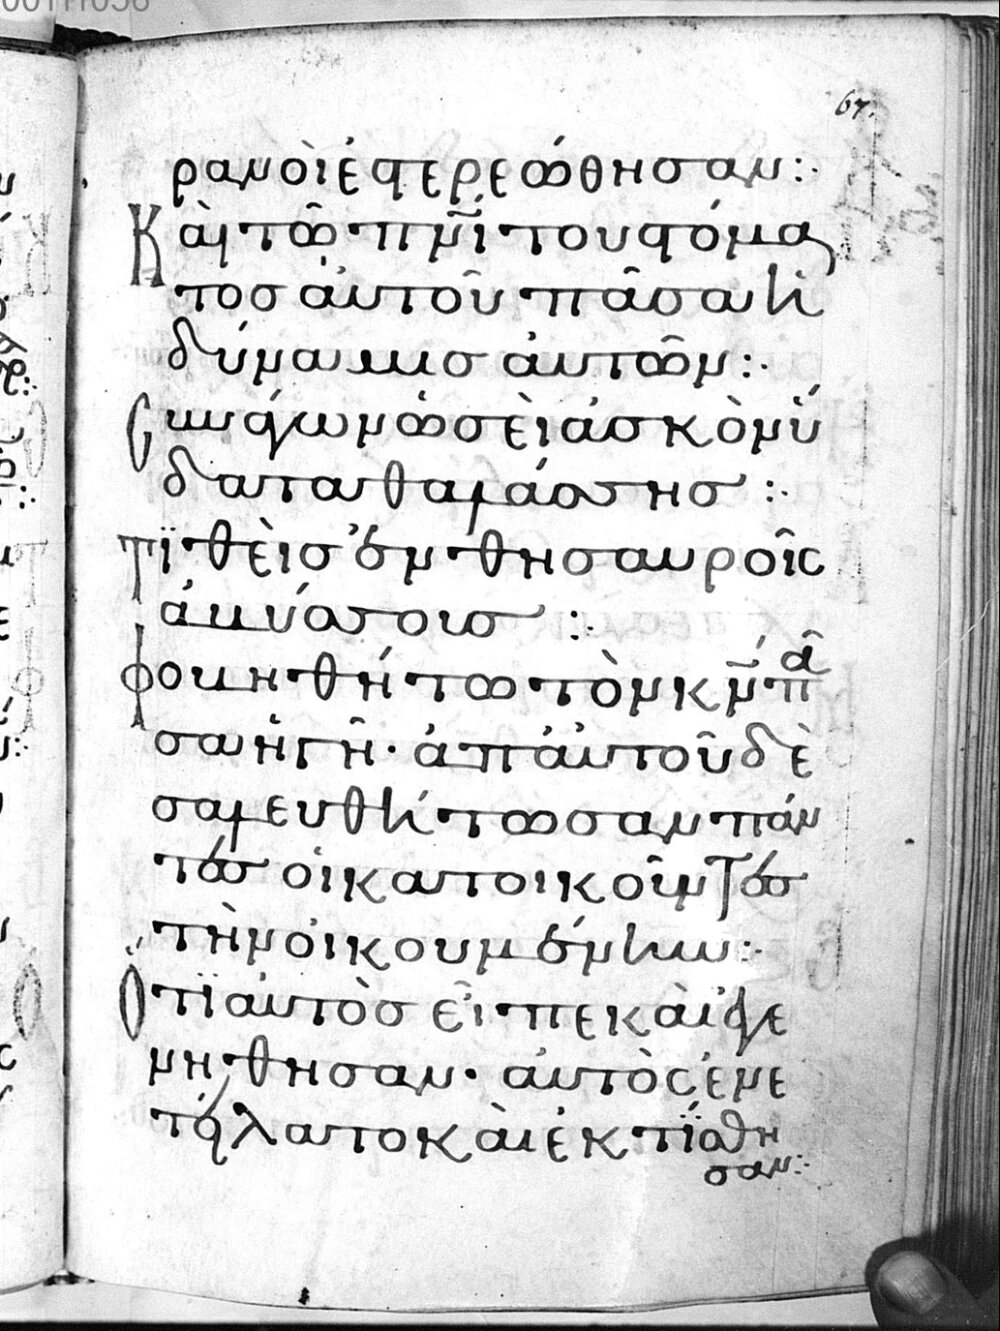 67.
ρανοὶ ἐστερεώθησαν:·
Καὶ τῶ πνι τοῦ στόμα
τοσ αὐτοῦ πᾶσα ἡ
δύναμισ αὐτῶν:·
Συνάγων ὡσεὶ ἀσκὸν ὕ
δατα θαλάσσησ:·
τιθεὶσ ἐν θησαυροῖς
ἀβύσσοισ:·
φοβηθήτω τὸν κν πᾶ
σα ἡ γῆ· ἀπ αὐτοῦ δὲ
σαλευθήτωσαν πάν
τεσ οἱ κατοικοῦντεσ
τὴν οἰκουμένην:·
Ὅτι αὐτὸσ εἶπε καὶ ἐγε
νήθησαν· αὐτὸς ἐνε
τείλατο καὶ ἐκτίσθη
σαν:·